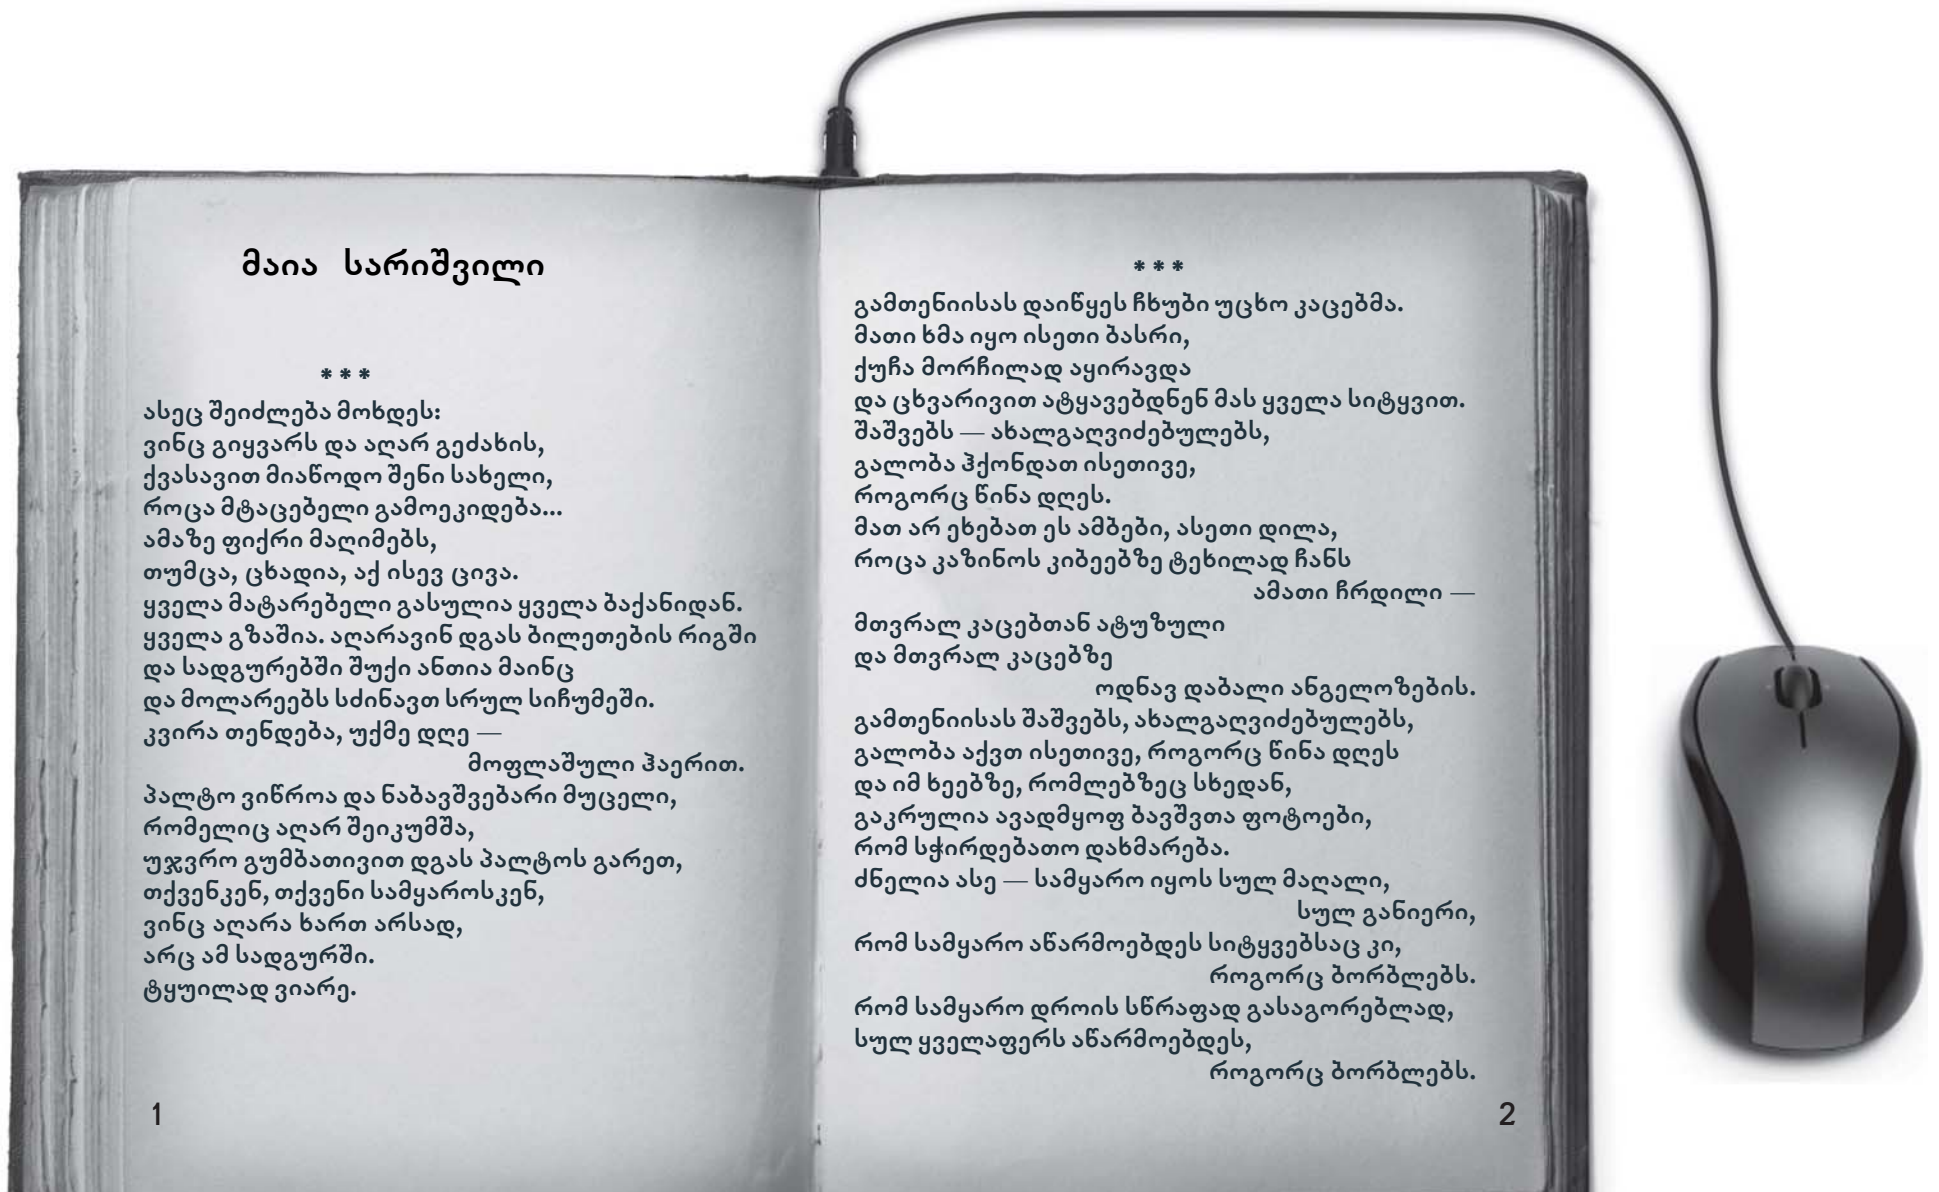 მაია სარიშვილი
* * *
ასეც შეიძლება მოხდეს:
ვინც გიყვარს და აღარ გეძახის,
ქვასავით მიაწოდო შენი სახელი,
როცა მტაცებელი გამოეკიდება...
ამაზე ფიქრი მაღიმებს,
თუმცა, ცხადია, აქ ისევ ცივა.
ყველა მატარებელი გასულია ყველა ბაქანიდან.
ყველა გზაშია. აღარავინ დგას ბილეთების რიგში
და სადგურებში შუქი ანთია მაინც
და მოლარეებს სძინავთ სრულ სიჩუმეში.
კვირა თენდება, უქმე დღე —
მოფლაშული ჰაერით.
პალტო ვიწროა და ნაბავშვებარი მუცელი,
რომელიც აღარ შეიკუმშა,
უჯვრო გუმბათივით დგას პალტოს გარეთ,
თქვენკენ, თქვენი სამყაროსკენ,
ვინც აღარა ხართ არსად,
არც ამ სადგურში.
ტყუილად ვიარე.
1
* * *
გამთენიისას დაიწყეს ჩხუბი უცხო კაცებმა.
მათი ხმა იყო ისეთი ბასრი,
ქუჩა მორჩილად აყირავდა
და ცხვარივით ატყავებდნენ მას ყველა სიტყვით.
შაშვებს — ახალგაღვიძებულებს,
გალობა ჰქონდათ ისეთივე,
როგორც წინა დღეს.
მათ არ ეხებათ ეს ამბები, ასეთი დილა,
როცა კაზინოს კიბეებზე ტეხილად ჩანს
ამათი ჩრდილი —
მთვრალ კაცებთან ატუზული
და მთვრალ კაცებზე
ოდნავ დაბალი ანგელოზების.
გამთენიისას შაშვებს, ახალგაღვიძებულებს,
გალობა აქვთ ისეთივე, როგორც წინა დღეს
და იმ ხეებზე, რომლებზეც სხედან,
გაკრულია ავადმყოფ ბავშვთა ფოტოები,
რომ სჭირდებათო დახმარება.
ძნელია ასე — სამყარო იყოს სულ მაღალი,
სულ განიერი,
რომ სამყარო აწარმოებდეს სიტყვებსაც კი,
როგორც ბორბლებს.
რომ სამყარო დროის სწრაფად გასაგორებლად,
სულ ყველაფერს აწარმოებდეს,
როგორც ბორბლებს.
2